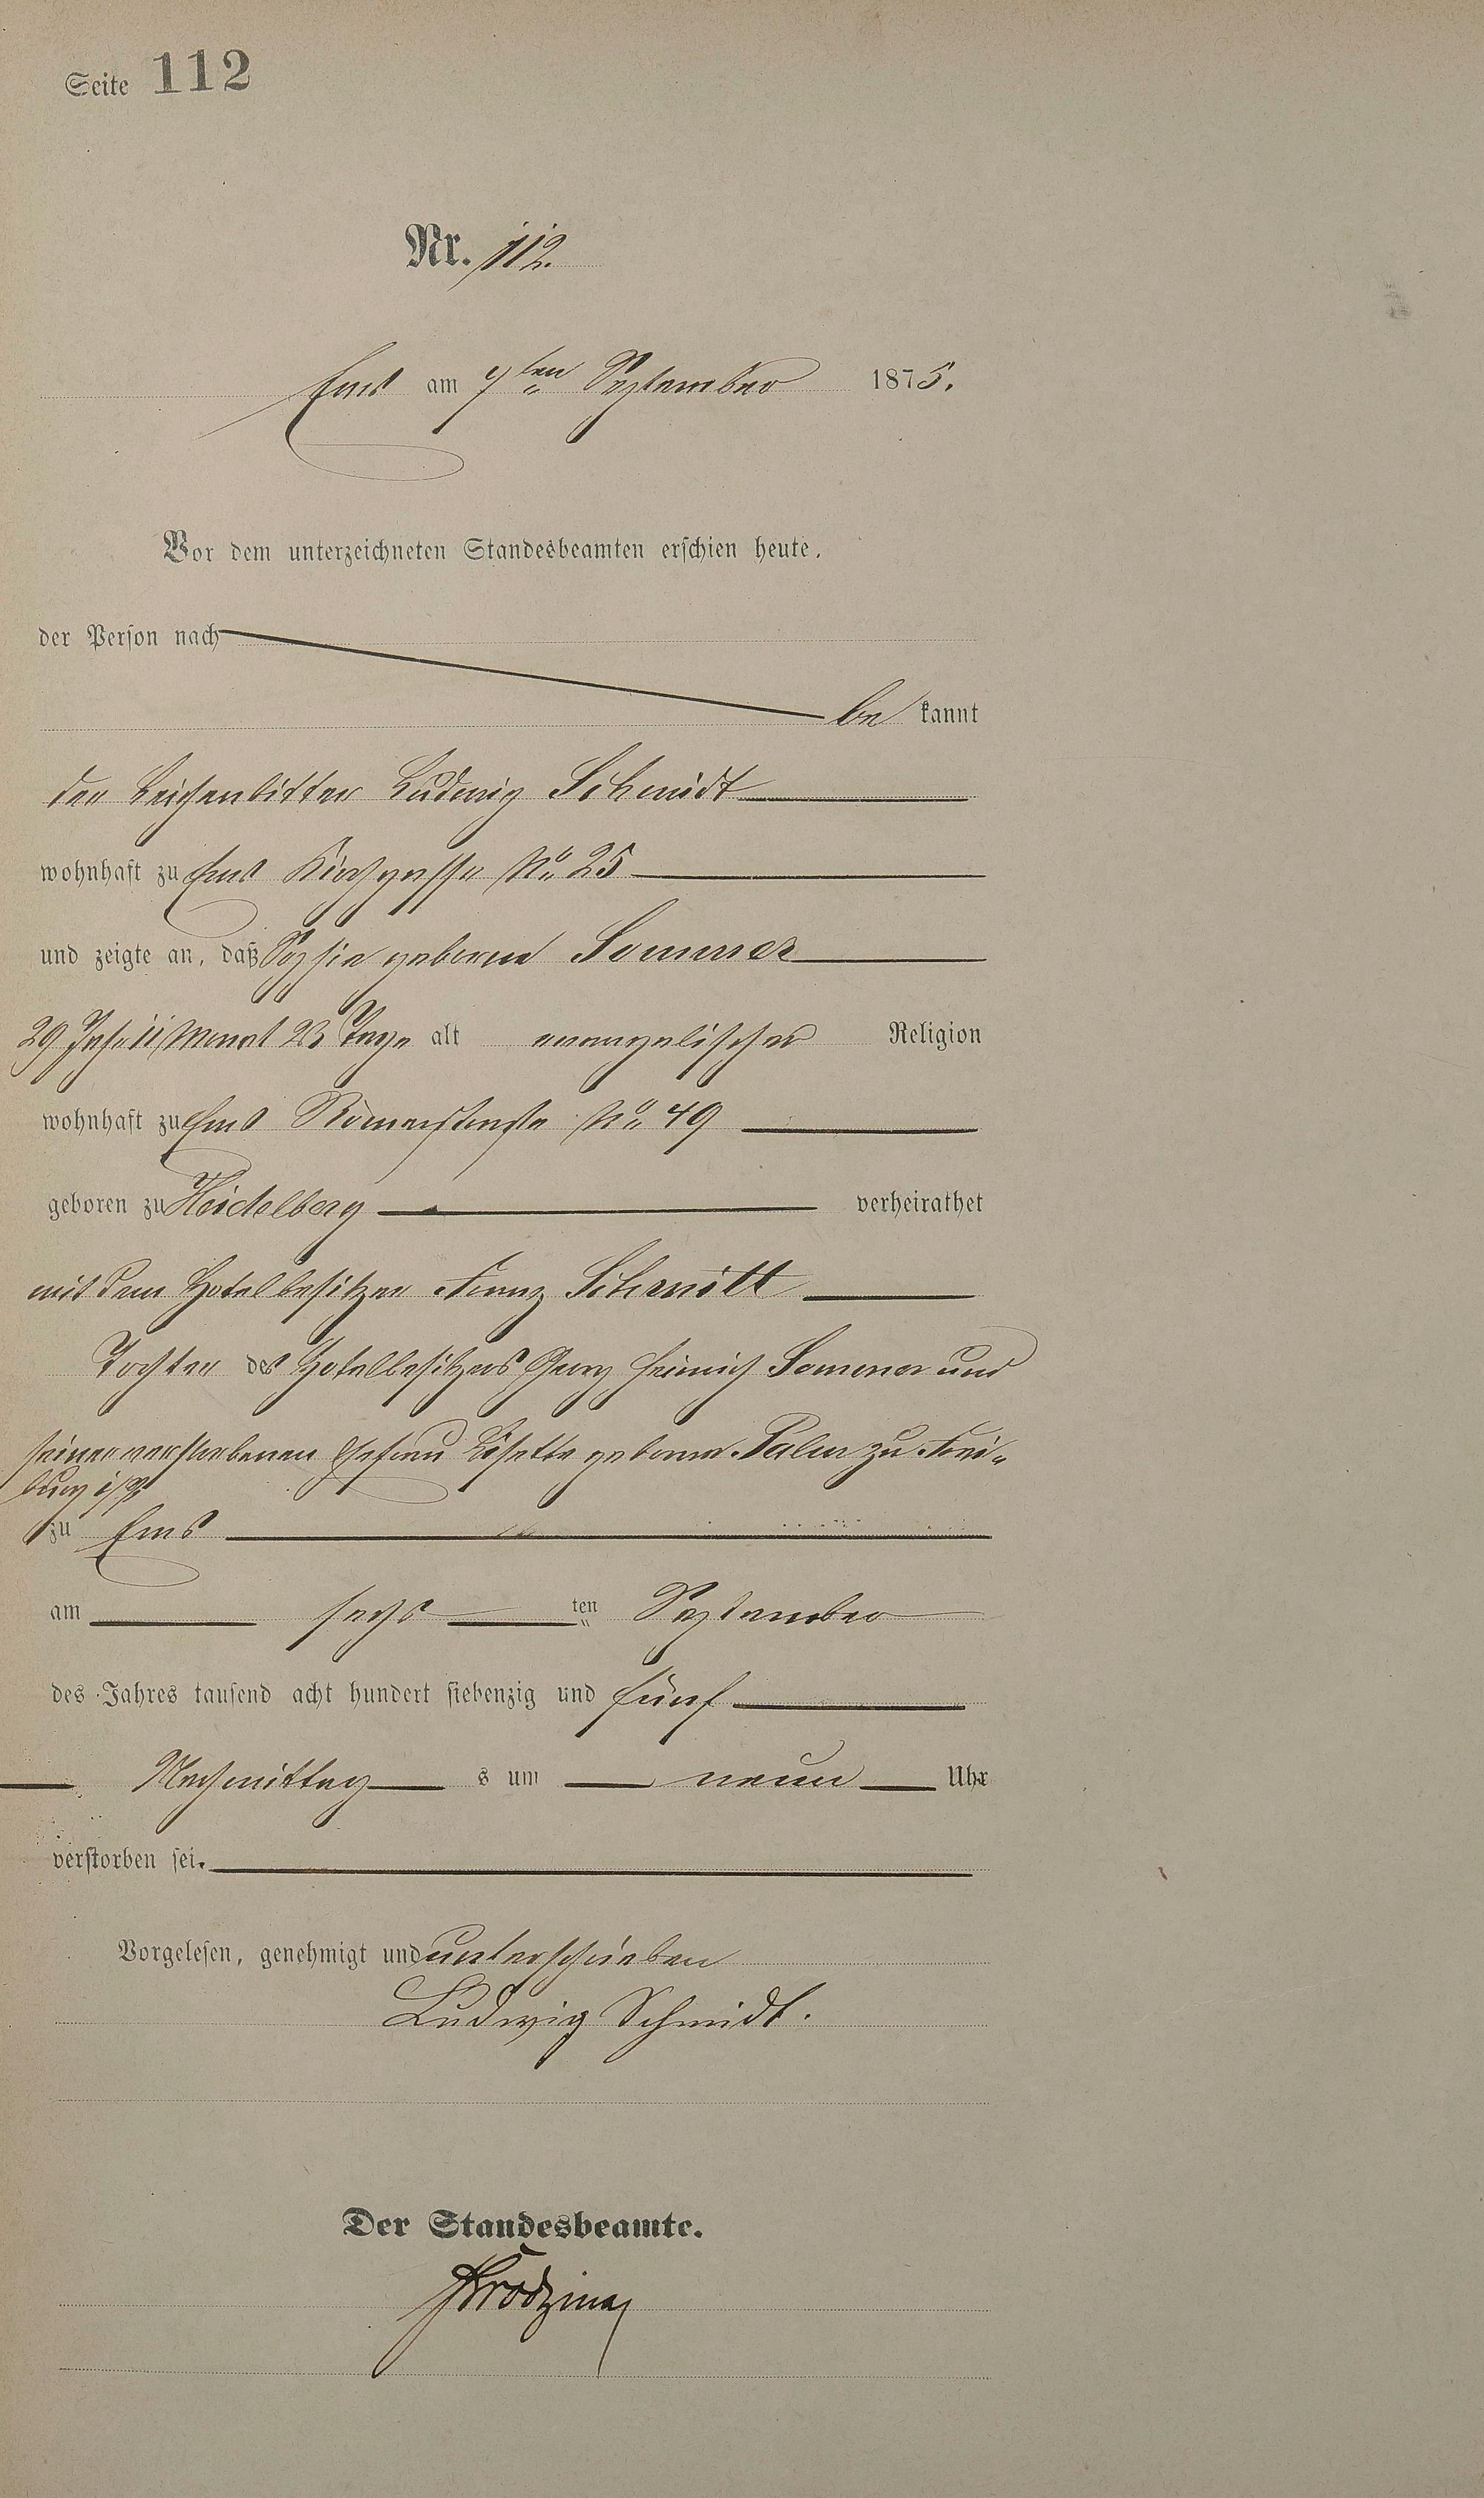 Seite 112
Nr. 112.
Ems am 7ten September 1875.
Vor dem unterzeichneten Standesbeamten erschien heute,
der Person nach
be kannt
der Leichenbitter Ludwig Schmidt
wohnhaft zu Ems Kirchgasse No 25
und zeigte an, daß Sophie geborene Sommer
29 Jahr 11 Monat 23 Tage alt evangelischer Religion
wohnhaft zu Ems Römerstraße No 49
geboren zu Heidelberg verheirathet
mit dem Hotelbesitzer Franz Schmitt
Tochter des Hotelbesitzers Georg Heinrich Sommer und
seiner verstorbenen Ehefrau Lisette geborene Palm zu Frei-
burg i/B
zu Ems
am sechs ten September
des Jahres tausend acht hundert siebenzig und fünf
Nachmittag s um neun Uhr
verstorben sei.
Vorgelesen, genehmigt und unterschrieben
Ludwig Schmidt.
Der Standesbeamte.